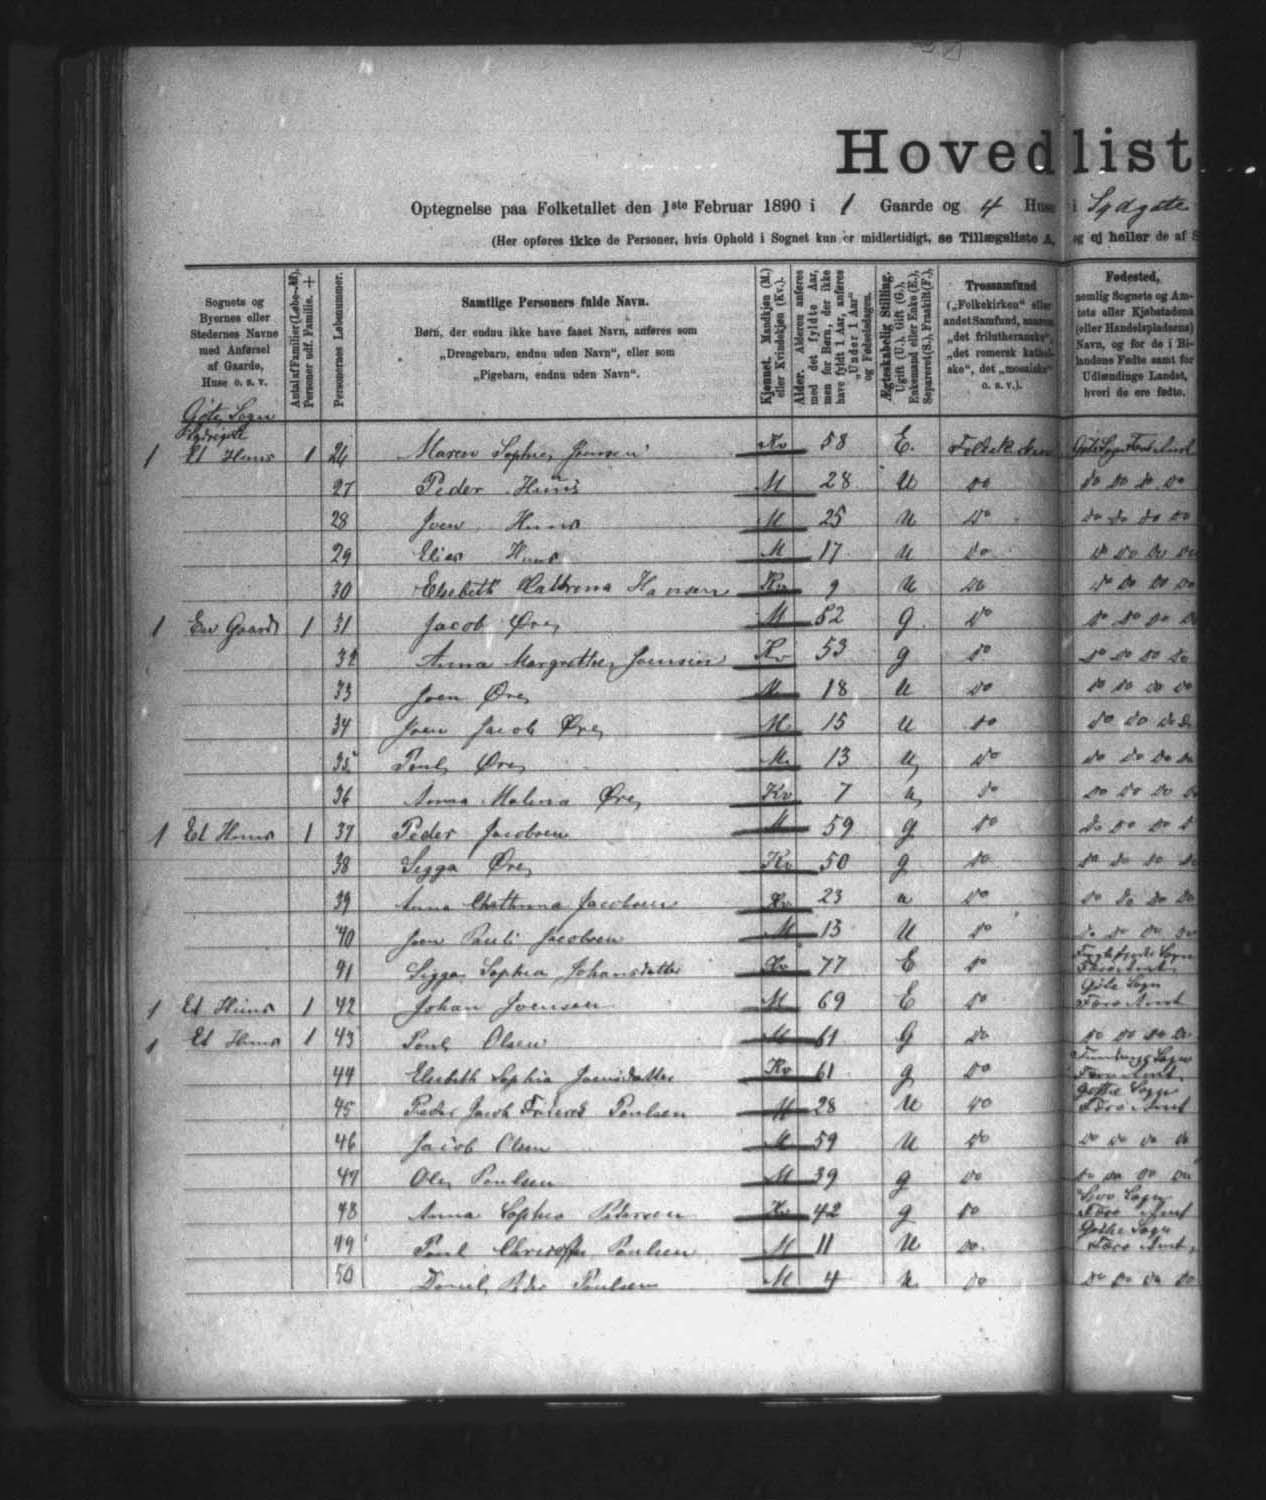 Hovedlist
Optegnelse paa Folketallet den 1ste Februar 1890 i 1 Gaarde og 4 Huse i Sydgöte
(Her opføres ikke de Personer, hvis Ophold i Sognet kun er midlertidigt, se Tillægsliste A, og ej heller de af S
Sognets og Byernes eller Stedernes Navne med Anførsel af Gaarde, Huse o. s. v.
Antal af Familier (Løbe-Nr.). Personer udf. Familie. +
Personernes Løbenummer.
Samtlige Personers fulde Navn.
Børn, der endnu ikke have faaet Navn, anføres som
„Drengebarn, endnu uden Navn“, eller som
„Pigebarn, endnu uden Navn“.
Kjønnet. Mandkjøn (M.) eller Kvindekjøn (Kv.).
Alder. Alderen anføres med det fyldte Aar, men for Børn, der ikke have fyldt 1 Aar, anføres „Under 1 Aar“ og Fødselsdagen.
Ægteskabelig Stilling. Ugift (U.), Gift (G.), Enkemand eller Enke (E.), Separeret (S.), Fraskilt (F.),
Trossamfund
(„Folkekirken“ eller andet Samfund, saasom „det frilutheranske“, „det romersk katholske“, det „mosaiske“ o. s. v.).
Fødested,
nemlig Sognets og Amtets eller Kjøbstadens (eller Handelspladsens) Navn, og for de i Bilandene Fødte samt for Udlændinge Landet, hvori de ere fødte.
Göte Sogn
1 Et Huus 1 26 Maren Sophie Joensen Kv 58 E. Folkekirken Göte Sogn Færö Amt
27 Peder Huus M 28 U do do do do do
28 Joen Huus M 25 U do do do do do
29 Elias Huus M 17 U do do do do do
30 Elsebeth Cathrina Hansen Kv 9 U do do do do do
1 En Gaard 1 31 Jacob Øre M 52 g do do do do do
32 Anna Margrethe Joensen Kv 53 g do do do do do
33 Joen Øre M 18 U do do do do do
34 Joen Jacob Øre M 15 U do do do do do
35 Poul Øre M 13 U do do do do do
36 Anna Malena Øre Kv 7 u do do do do do
1 Et Huus 1 37 Peder Jacobsen M 59 g do do do do do
38 Sigga Øre Kv 50 g do do do do do
39 Anna Chathrina Jacobsen Kv 23 u do do do do do
40 Joen Pauli Jacobsen M 13 U do do do do do
41 Sigga Sophia Johansdatter Kv 77 E do Fuglefjords Sogn Færö Amt
1 Et Huus 1 42 Johan Joensen M 69 E do Göte Sogn Færo Amt
1 Et Huus 1 43 Poul Olsen M 61 G do do do do do
44 Elsebeth Sophia Joensdatter Kv 61 g do Sogn Færo Amt.
45 Peder Jacob Poulsen M 28 U do Göthe Sogn Færo Amt
46 Jacob Olsen M 59 U do do do do do
47 Ole Poulsen M 39 g do do do do do
48 Anna Sophia Petersen Kv 42 g do Sogn Færo Amt
49 Poul Poulsen M 11 U do. Göthe Sogn Færo Amt,
50 Daniel Poulsen M 4 u do do do do do